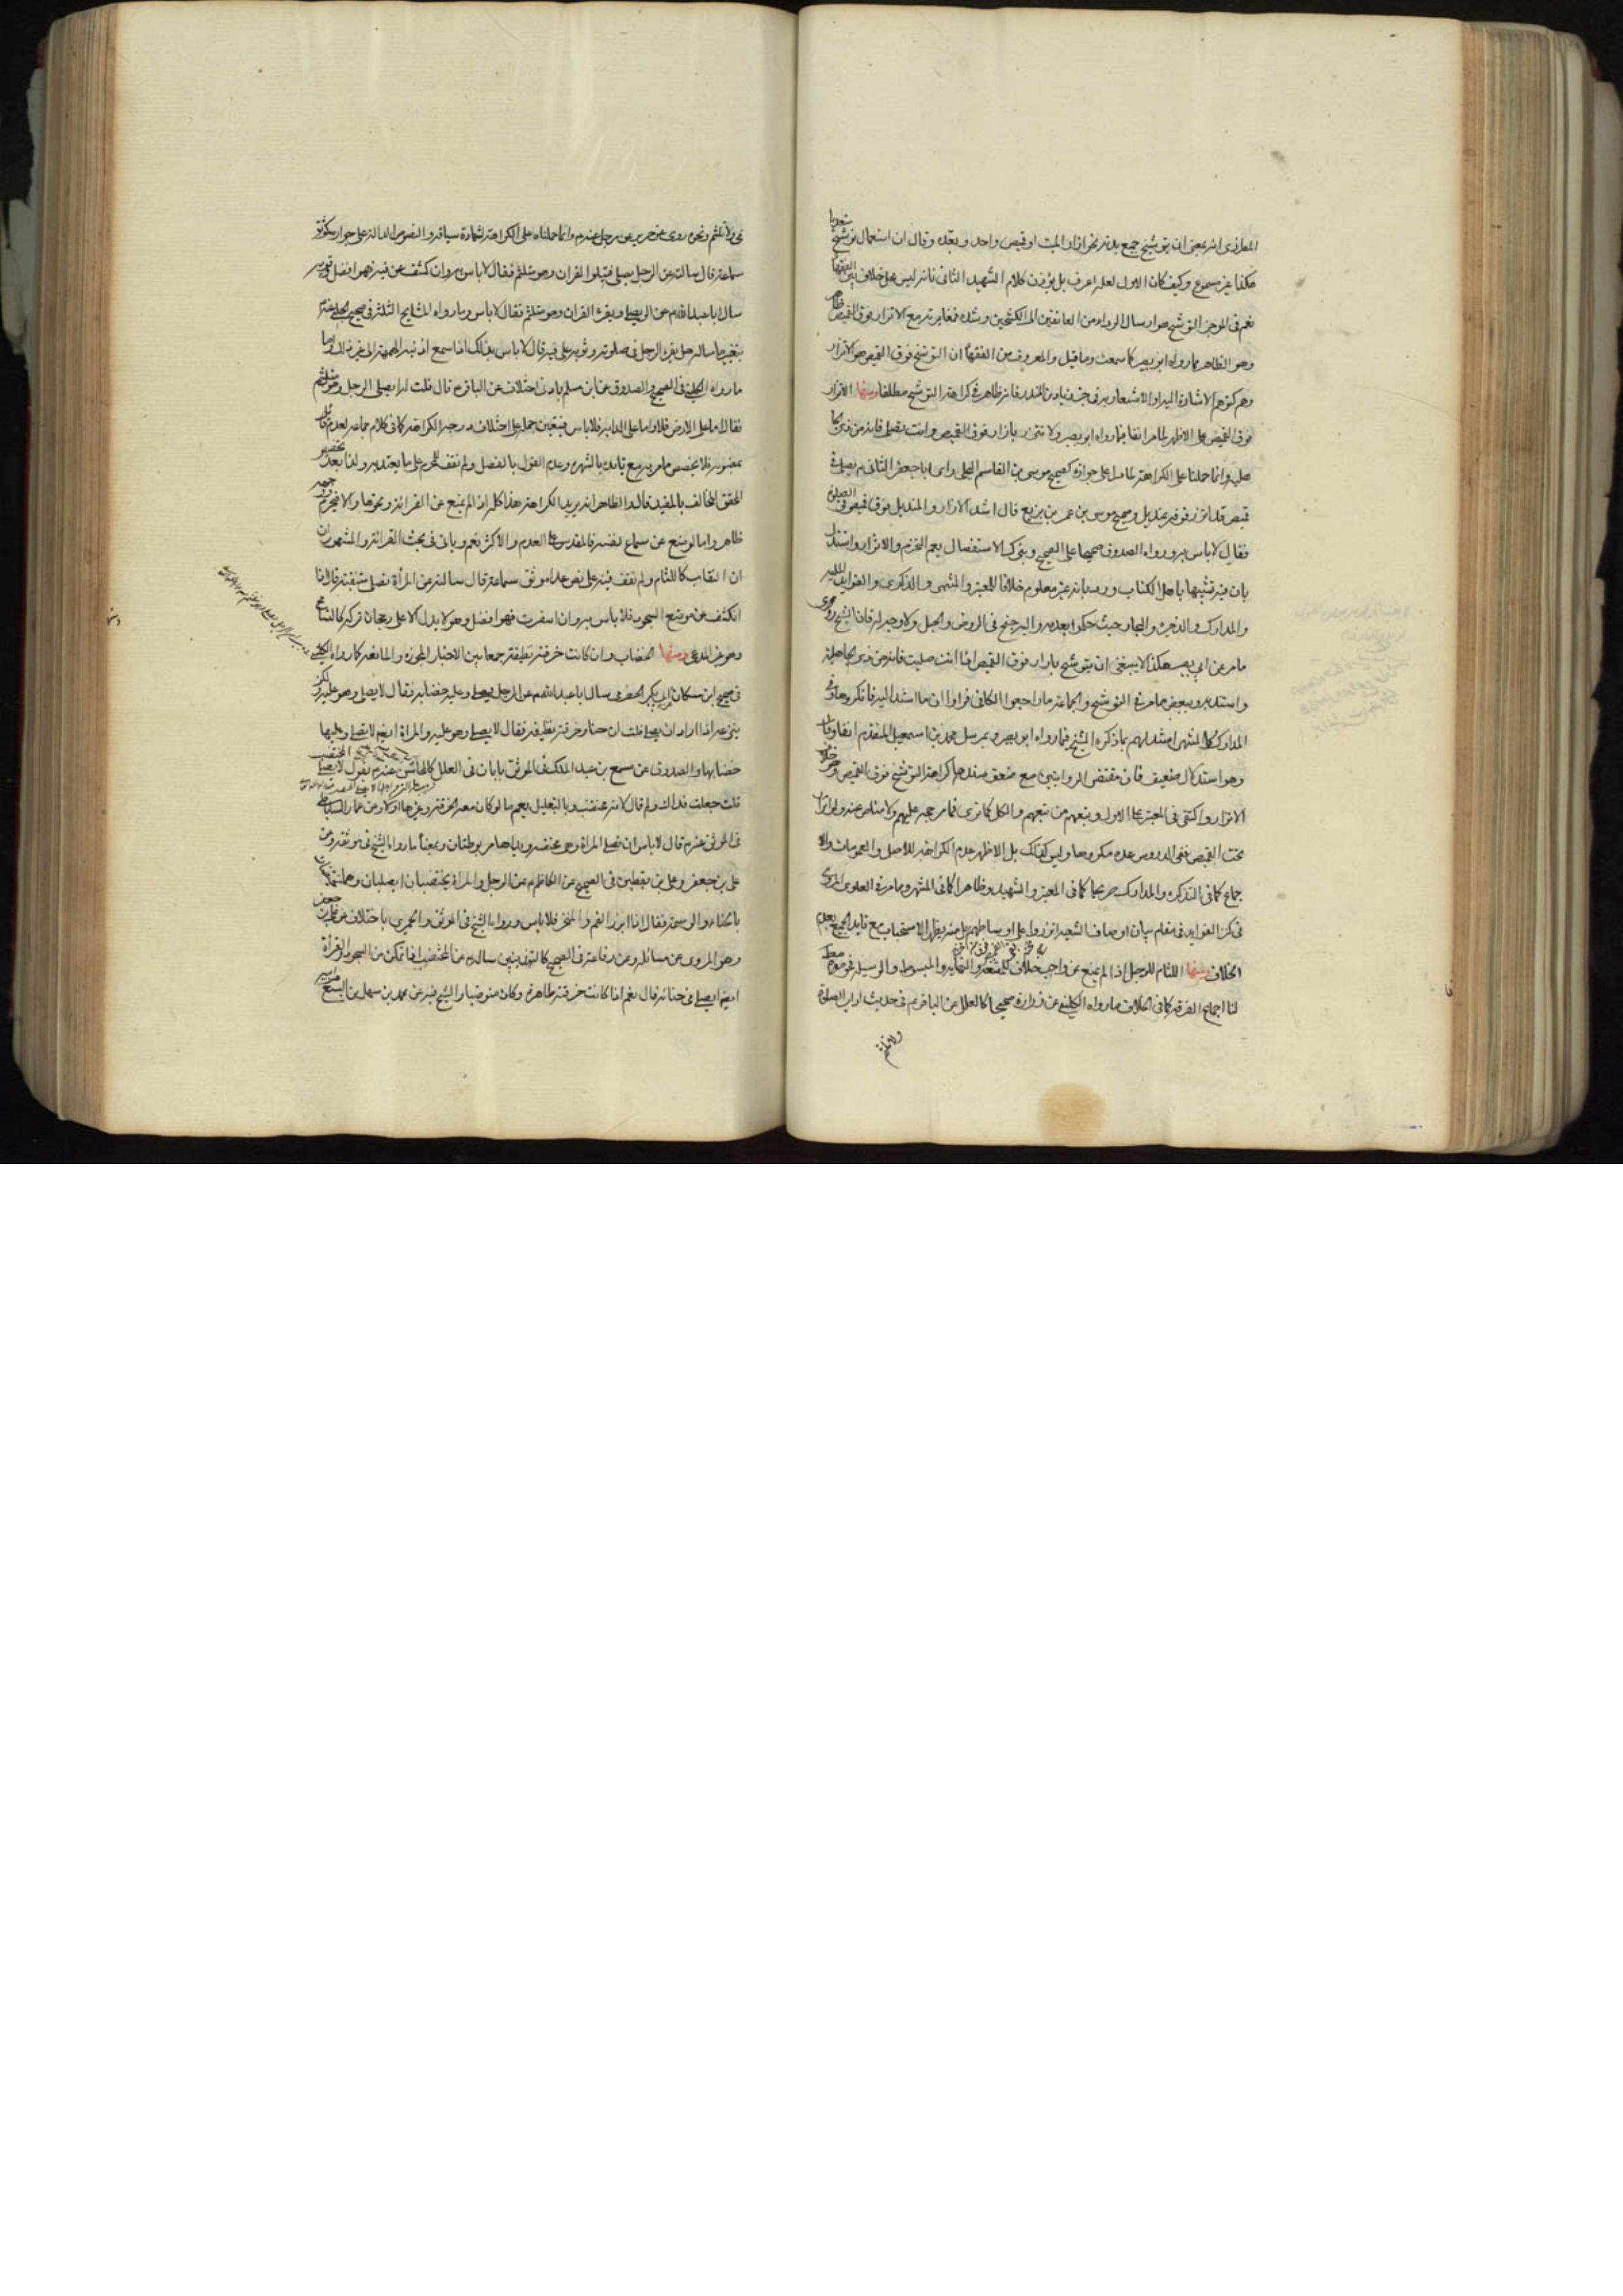 المطرزی انه بمعنى ان یتوشح جمع بدنه بنحو ازار المیت او قمیص واحد و یعقده و قال ان استعمال توشح متعدیا
هکذا غیر مسموع و کیف کان الاول لعله اعرف بل یؤذن کلام الشهید الثانی بانه لیس محل خلاف بین الفقهاء
نعم فی الموجز التوشح هو ارسال الرداء من العاتقین الى الکشحین و شده فمغایرته مع الاتزار فوق القمیص ظاهر
وهو الظاهر مما رواه ابو بصیر کما سمعت وما قیل والمعروف من الفقهاء ان التوشح فوق القمیص هو الاتزار
وهم کتوهم الاشارة الیه او الاشعار به فی خبر زیاد بن المنذر فانه ظاهر فی کراهة التوشح مطلقا ومنها الاتزار
فوق القمیص على الاظهر لما مر انفا مما رواه ابو بصیر ولا تتزر بازار فوق القمیص وانت تصلی فانه من زی الجا
هلیة وانما حملنا على الکراهة لما دل على جوازه کصحیح موسى بن القاسم البجلی راى ابا جعفر الثانی ع یصلی فی
قمیص قد اتزر فوقه بمندیل وصحیح موسى بن عمر بن بزیع قال اشد الازار والمندیل فوق قمیصی فی الصلوة
فقال لا باس به ورواه الصدوق صحیحا على الصحیح وبترک الاستفصال یعم الحزم والاتزار واستدل
بان فیه تشبها باهل الکتاب ورد بانه غیر معلوم خلافا للمعتبر والمنتهى والذکرى والفوائد الملیة
والمدارک والذخیرة والبحار حیث حکموا بعدمه والیه جنح فی الروض والحبل ولا وجه له فان الشیخ روى
ما مر عن ابی بصیر هکذا لا ینبغی ان یتوشح بازار فوق القمیص اذا انت صلیت فانه من زی الجاهلیة
واستدل به وببعض ما مر فی التوشح والجماعة ما راجعوا الکافی فراوا ان ما استند الیه فانکروها وفی
المدارک کالمنتهى استدلهم بما ذکره الشیخ فما رواه ابو بصیر وبمرسل محمد بن اسمعیل المتقدم انفا وقال
وهو استدلال ضعیف فان مقتضى الروایتین مع ضعف سندهما کراهة التوشح فوق القمیص وهو خلاف
الاتزار واکتفى فی المعتبر على الاول وتبعهم من تبعهم والکل کما ترى فما مر حجة علیهم ولا مناص عنه ولو اتزر
تحت القمیص ففی الدروس عده مکروها ولیس کذلک بل الاظهر عدم الکراهة للاصل والعمومات والا
جماع کما فی التذکرة والمدارک صریحا کما فی المعتبر والشهید وظاهرا کما فی المنتهى وما مر فی العلوی المروی
فی کنز الفوائد فی مقام بیان اوصاف الشیعة اتزروا على اوساطهم بل منه یظهر الاستحباب مع تاید الجمیع بعدم
الخلاف ومنها اللثام للرجل اذا لم یمنع عن واجب خلافا للمقنعة والنهایة والمبسوط والوسیلة فحرموه مط
لنا اجماع الفرقة کما فی الخلاف وما رواه الکلینی عن زرارة صحیحا کالعلل عن الباقر ع فی حدیث اداب الصلوة
ولا تلثم
نی ولا تلثم ونحوه روى عن حریز عن رجل عنه ع وانما حملناه على الکراهة لشهادة سیاقه والنصوص الدالة على جوازه کموثق
سماعة قال سالته عن الرجل یصلی فیتلو القران وهو متلثم فقال لا باس به وان کشف عن فیه فهو افضل وموثقه
سال ابا عبد الله ع عن الرجل یصلی ویقرء القران وهو متلثم فقال لا باس وبما رواه المشایخ الثلثة فی صحیح الحلبی عنه ع
بتغییر ما ساله هل یقرء الرجل فی صلوته وثوبه على فیه قال لا باس بذلک اذا سمع اذنیه الهمهمة الى غیر ذلک واما
ما رواه الکلینی فی الصحیح والصدوق عن ابن مسلم بادنى اختلاف عن الباقر ع قال قلت له ایصلی الرجل وهو متلثم
فقال اما على الارض فلا واما على الدابة فلا باس فیتعین حمله على اختلاف درجة الکراهة کما فی کلام جماعة لعدم قائل
بمضمونه فلا یخصص ما مر به مع تایده بالشهرة وعدم القول بالفصل ولم نقف للمحرم على ما یعتد به ولذا بعد تخصیص
المحقق المخالف بالمفید قال والظاهر انه یرید الکراهة هذا کله اذا لم یمنع عن القرائة ونحوها والا فیحرم ووجهه
ظاهر واما لو منع عن سماع نفسه فالمقدس على العدم والاکثر نعم ویاتی فی بحث القرائة والمشهور ان
ان النقاب کاللثام ولم نقف فیه على نص عدا موثق سماعة قال سالته عن المراة تصلی متنقبة قال اذا
انکشف عن موضع السجود فلا باس به وان اسفرت فهو افضل وهو لا یدل الا على رجحان ترکه کالتسامح
وهو غیر المدعى ومنها الخضاب وان کانت خرقته نظیفة جمعا بین الاخبار المجوزة والمانعة کما رواه الکلینی
فی صحیح ابن مسکان عن ابی بکر الحضرمی سال ابا عبد الله ع عن الرجل یصلی وعلیه خضابه فقال لا یصلی وهو علیه ولکن
ینزعه اذا اراد ان یصلی قلت ان حناه وخرقته نظیفة فقال لا یصلی وهو علیه والمراة ایضا لا تصلی وعلیها
خضابها والصدوق عن مسمع بن عبد الملک فی الموثق بابان فی العلل کالمحاسن عنه ع یقول لا یصلی المختضب
قلت جعلت فداک ولم قال لانه محتضر وبالتعلیل یعم ما لو کان معه الخرقة وغیرها او لا وعن عمار الساباطی
فی الموثق عنه ع قال لا باس ان تصلی المراة وهی مختضبة ویداها مربوطتان وبمعناه ما رواه الشیخ فی موثقه وعن
على بن جعفر وعلى بن یقطین فی الصحیح عن الکاظم ع عن الرجل والمراة یختضبان ایصلیان وهما مختضبان
بالحناء والوسمة فقال اذا ابرز الفم والمنخر فلا باس ورواه الشیخ فی الموثق والحمیری باختلاف عن على بن جعفر
وهو المروی عن مسائله وعن رفاعة فی الصحیح کالتهذیبین ساله ع عن المختضب اذا تمکن من السجود والقرأة
ایضا ایصلی فی حنائه قال نعم اذا کانت خرقته طاهرة وکان متوضیا والشیخ فیه عن محمد بن سهل بن الیسع